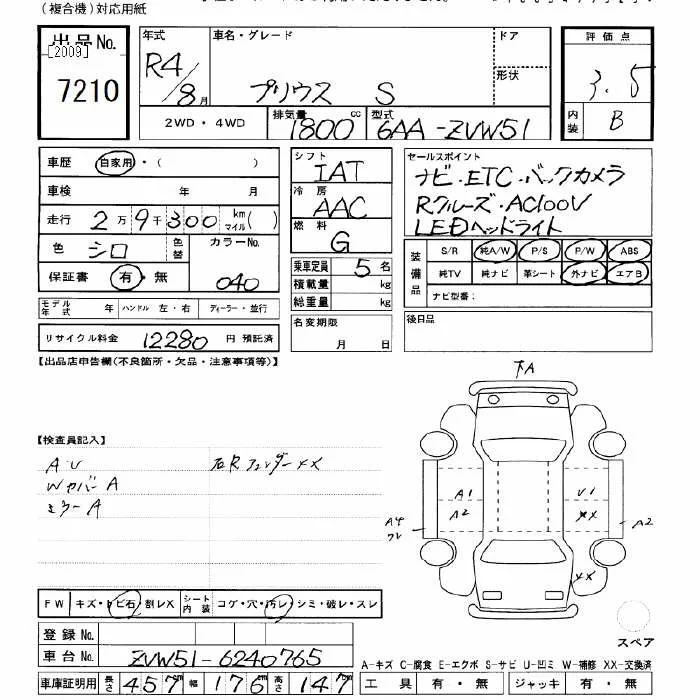 (複合機)対応用紙
出品No.
[2009]
7210
年式
R4/8月
車名・グレード
プリウス S
ドア
形状
評価点
3.5
内装
B
2WD・4WD
排気量
1800cc
型式
6AA-ZVW51
車歴 自家用・( )
車検 年 月
走行 2万9千300km マイル( )
色 シロ
色替
カラーNo.
040
保証書 有・無
モデル年式 年 ハンドル 左・右 ディーラー・並行
リサイクル料金 12280円 預託済
シフト
IAT
冷房
AAC
燃料
G
乗車定員 5名
積載量 kg
総重量 kg
名変期限
月 日
セールスポイント
ナビ・ETC・バックカメラ
Rクルーズ・AC100V
LEDヘッドライト
装備品
S/R 純A/W P/S P/W ABS
純TV 純ナビ 革シート 外ナビ エアB
ナビ型番:
後日品
【出品店申告欄(不良箇所・欠品・注意事項等)】
【検査員記入】
A・U
Wカバー A
ミラーA
右Rフェンダー XX
下A
A1
A2
U1
XX
A4
A2
XX
FW キズ・トビ石・割レX
シート内装 コゲ・穴・汚レ・シミ・破レ・スレ
スペア
登録No.
車台No. ZVW51-6240765
A-キズ C-腐食 E-エクボ S-サビ U-凹ミ W-補修 XX-交換済
車庫証明用 長さ 457 幅 176 高さ 147
工具 有・無 ジャッキ 有・無